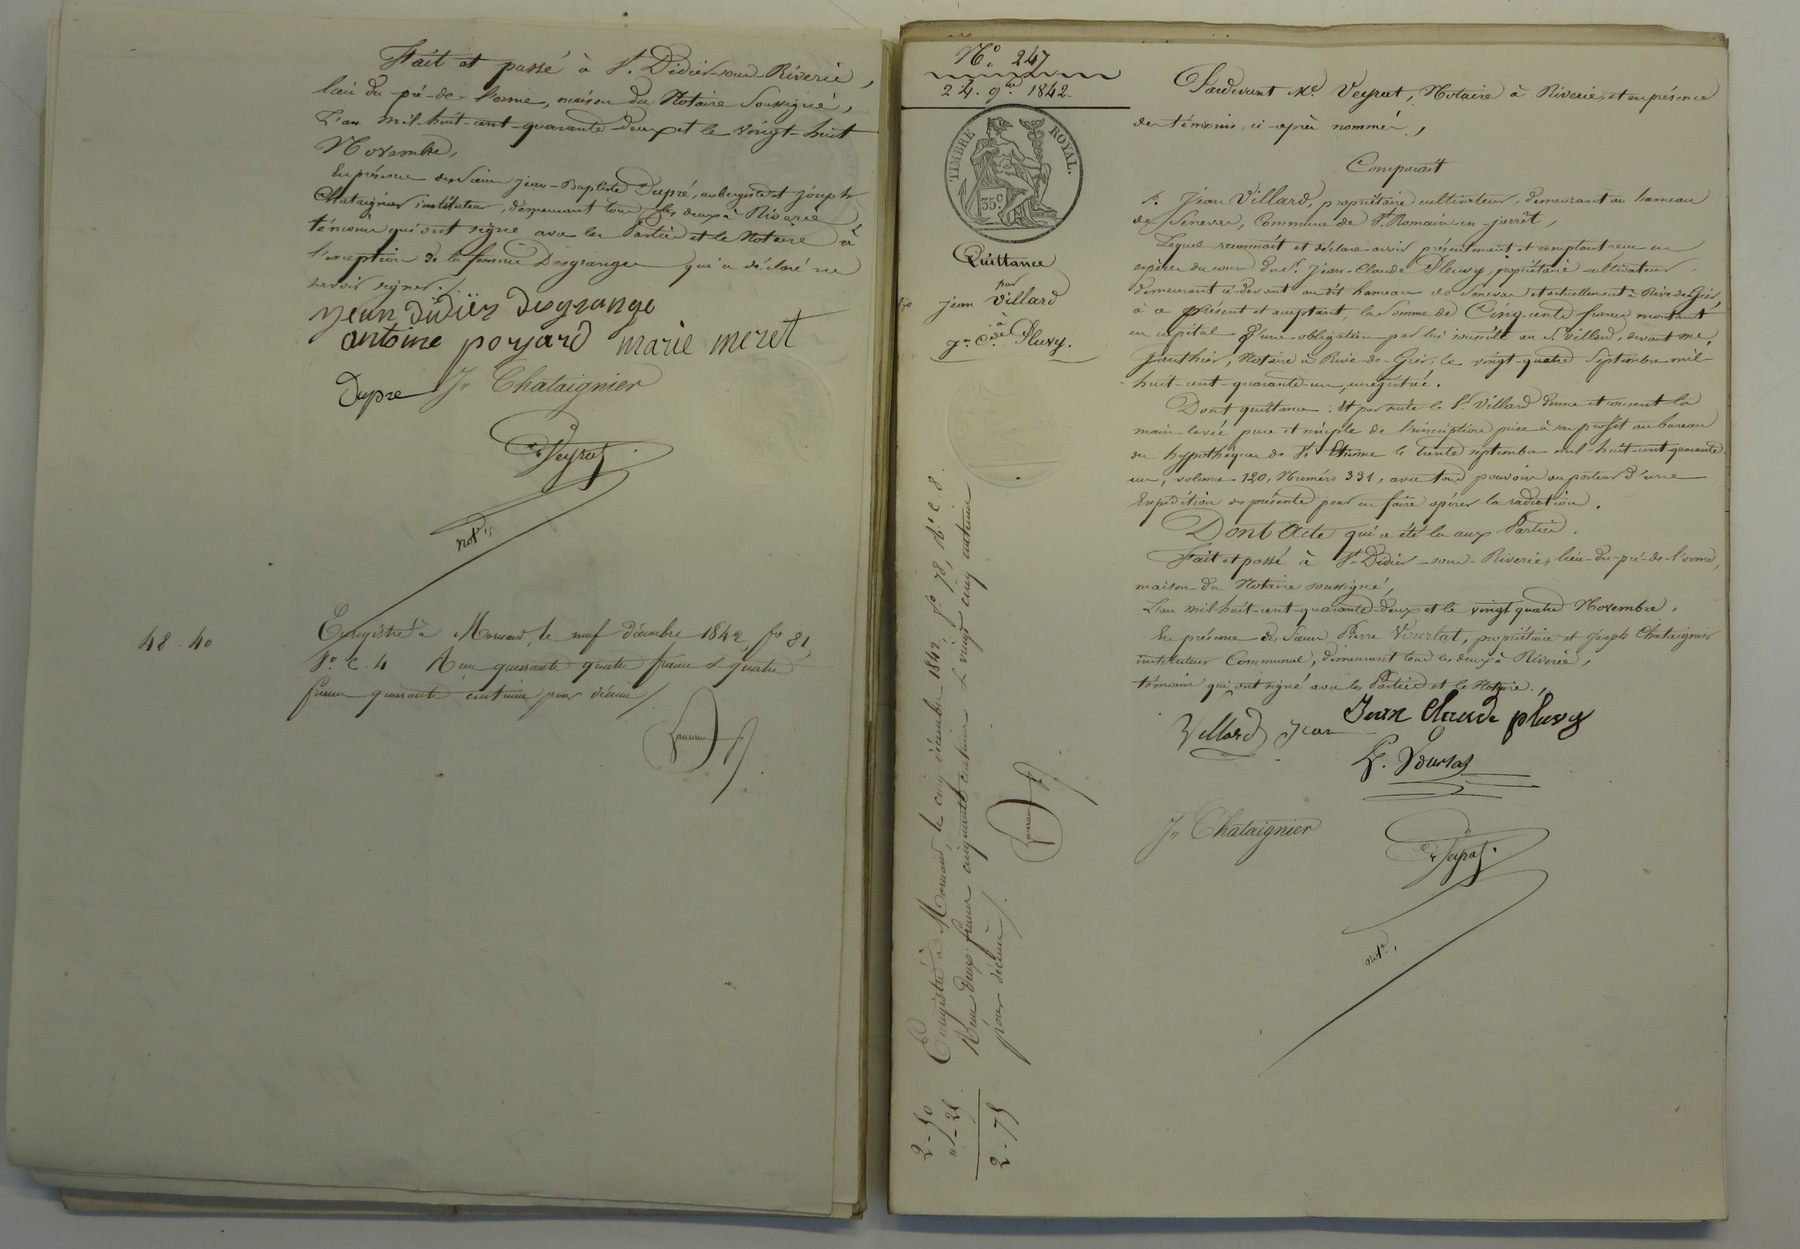 Fait et passé à St. Didier-sous-Riverie,
lieu du pré-de-l'orme, maison du Notaire Soussigné,
L'an mil-huit-cent-quarante-deux et le vingt huit
Novembre,
En présence des Sieurs Jean-Baptiste Dupré, aubergiste et Joseph
Chataignier instituteur, demeurant tous les deux à Riverie,
témoins qui ont signé avec les Parties et le Notaire à
l'exception de la femme Desgranges qui a déclaré ne
savoir signer./.
jean didier desgrange
antoine poyard marie meret
Dupré Jh Chataignier
Veyrat
not.re
48-40
Enregistré à Mornant, le neuf décembre 1842, fo 81,
Vo c. 4 Reçu quarante quatre francs & quatre
francs quarante centimes pour décime /.
No. 247
24. 9bre 1842.
TIMBRE ROYAL.
35 c.
Quittance
par
jean Villard
à
jn. Cde. Pluvy.
Enregistré à Mornant, le cinq décembre 1842, fo 78, Ro c. 8.
Reçu deux francs cinquante centimes & vingt cinq centimes
pour décime /.
2-50
"-25
2-75
Pardevant Me. Veyrat, Notaire à Riverie, et en présence
des témoins ci-après nommés,
Comparait
Sr. Jean Villard, propriétaire cultivateur, demeurant au hameau
de Senevas, Commune de St. Romain-en-jarrêt,
Lequel reconnaît et déclare avoir présentement et comptant reçu en
espèces du cours du Sr. Jean-Claude Pluvy, propriétaire cultivateur,
demeurant ci-devant au dit hameau de Senevas et actuellement à Rive-de-Gier,
à ce présent et acceptant, la somme de Cinq cents francs montant
en capital d'une obligation par lui souscrite au Sr. Villard, devant Me.
Gauthier, Notaire à Rive-de-Gier, le vingt-quatre Septembre mil-
huit-cent-quarante-un, enregistrée.
Dont quittance: Et par suite le Sr. Villard donne et consent la
main-levée pure et simple de l'inscription prise à son profit au bureau
des hypothèques de St. Etienne le trente septembre mil-huit-cent-quarante-
un, volume 120, Numéro 331, avec tout pouvoir au porteur d'une
Expédition des présentes pour en faire opérer la radiation.
Dont Acte qui a été lu aux Parties.
Fait et passé à St. Didier-sous-Riverie, lieu-du-pré-de-l'orme,
maison du Notaire soussigné,
L'an mil-huit-cent-quarante-deux et le vingt quatre Novembre,
En présence des Sieurs Pierre Vourlat, propriétaire et Joseph Chataignier
instituteur Communal, demeurant tous les deux à Riverie,
témoins qui ont signé avec les Parties et le Notaire./.
Villard Jean Jean Claude pluvy
P. Vourlat
Jh Chataignier
Veyrat
not.re